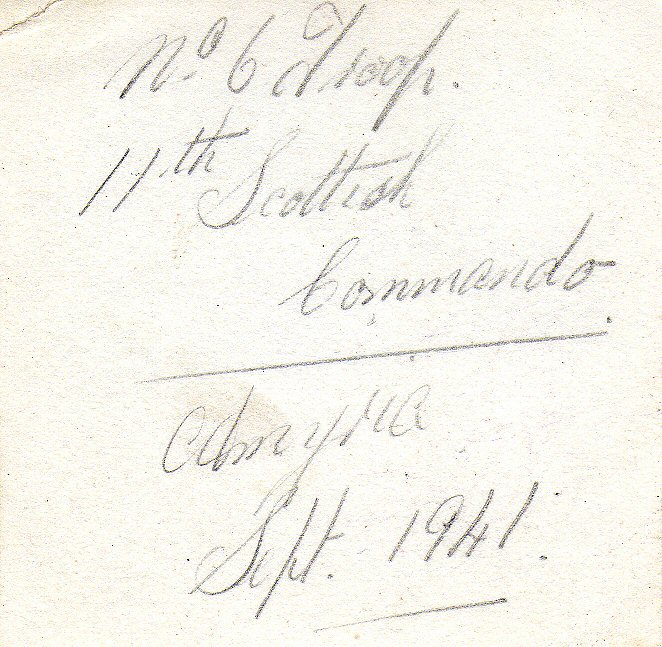 No 6 Troop.
11th Scottish
Commando.
Amyria
Sept. 1941.